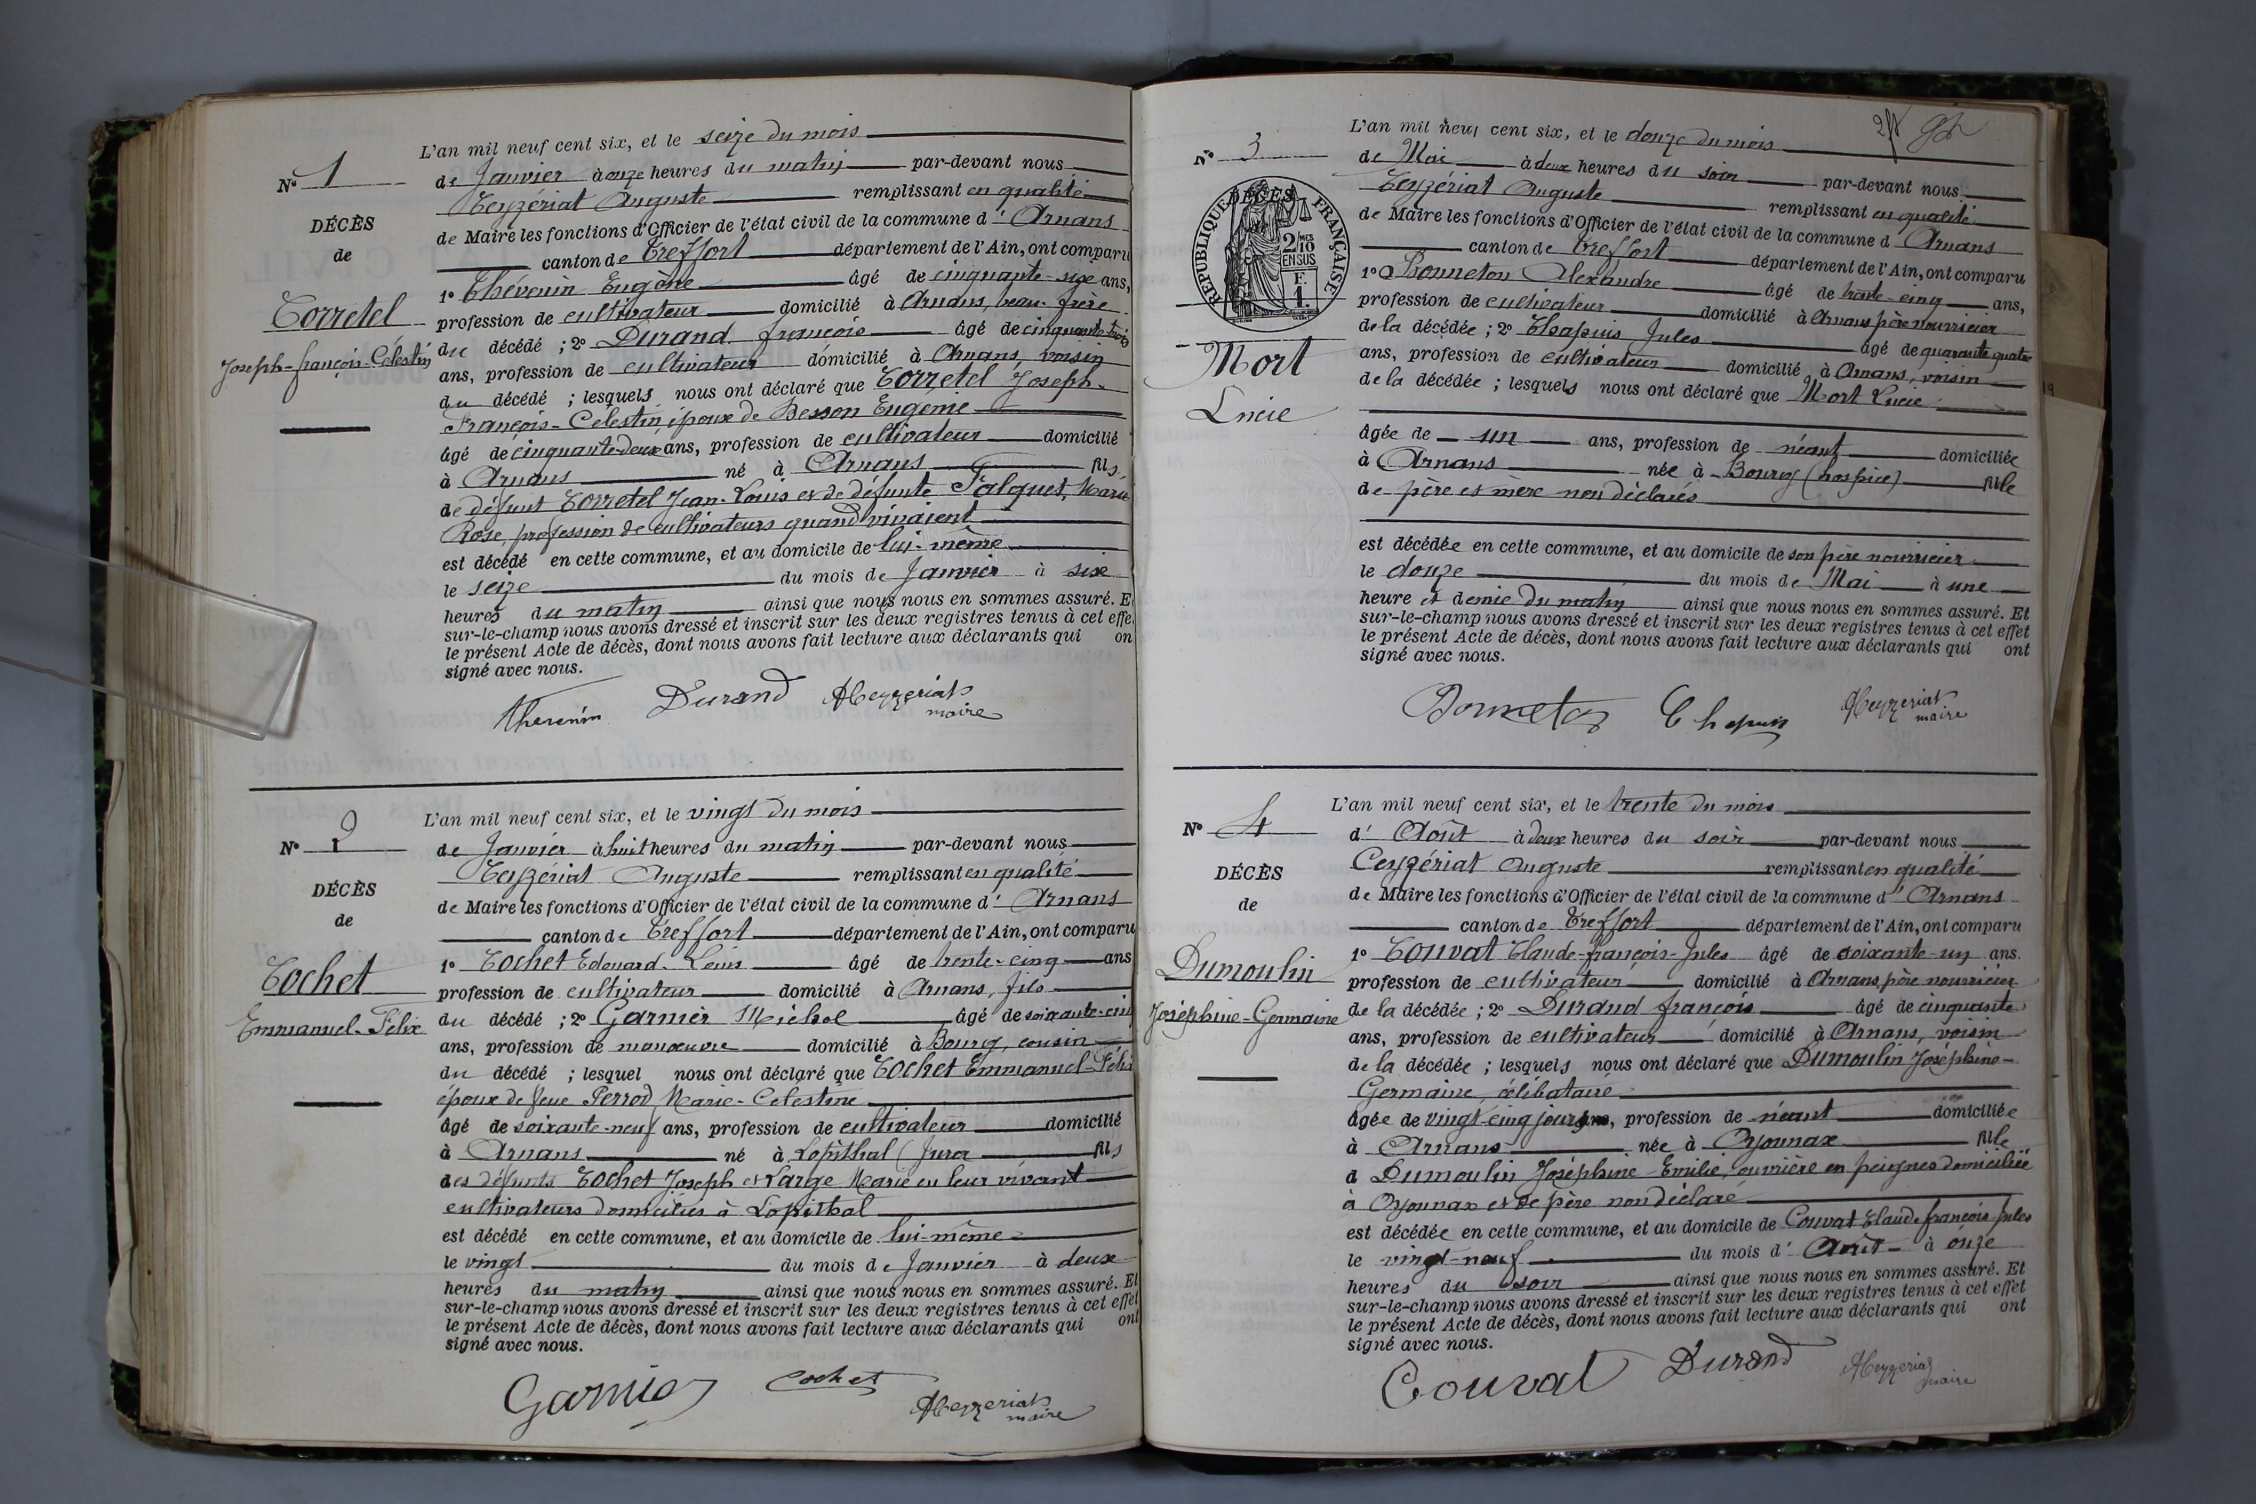 L'an mil neuf cent six, et le seize du mois
N° 1
de Janvier à onze heures du matin par-devant nous
Ceyzériat Auguste remplissant en qualité
DÉCÈS
de Maire les fonctions d'Officier de l'état civil de la commune d' Arnans
de
canton de Treffort département de l'Ain, ont comparu
1° Thévenin Eugène âgé de cinquante-six ans,
Corretel
profession de cultivateur domicilié à Arnans, beau-frère
du décédé ; 2° Durand françois âgé de cinquante-trois
Joseph-françois-Célestin
ans, profession de cultivateur domicilié à Arnans, voisin
du décédé ; lesquels nous ont déclaré que Corretel Joseph-
François-Célestin époux de Besson Eugénie
âgé de cinquante-deux ans, profession de cultivateur domicilié
à Arnans né à Arnans fils
de défunt Corretel Jean-Louis et de défunte Falquet, Marie
Rose, profession de cultivateurs quand vivaient
est décédé en cette commune, et au domicile de lui-même
le seize du mois de Janvier à six
heures du matin ainsi que nous nous en sommes assuré. E
sur-le-champ nous avons dressé et inscrit sur les deux registres tenus à cet effe
le présent Acte de décès, dont nous avons fait lecture aux déclarants qui on
signé avec nous.
Thevenin Durand A Ceyzeriat
maire
L'an mil neuf cent six, et le vingt du mois
N° 2
de Janvier à huit heures du matin par-devant nous
Ceyzériat Auguste remplissant en qualité
DÉCÈS
de Maire les fonctions d'Officier de l'état civil de la commune d' Arnans
de
canton de Treffort département de l'Ain, ont comparu
1° Cochet Edouard-Louis âgé de trente-cinq ans
Cochet
profession de cultivateur domicilié à Arnans, fils
Emmanuel-Félix
du décédé ; 2° Garnier Michel âgé de soixante-cinq
ans, profession de manœuvre domicilié à Bourg, cousin
du décédé ; lesquel nous ont déclaré que Cochet Emmanuel-Félix
époux de feue Perrod, Marie-Celestine
âgé de soixante-neuf ans, profession de cultivateur domicilié
à Arnans né à Lopithal (Jura fils
des défunts Cochet Joseph et Large Marie en leur vivant
cultivateurs domiciliés à Lopithal
est décédé en cette commune, et au domicile de lui-même
le vingt du mois de Janvier à deux
heures du matin ainsi que nous nous en sommes assuré. Et
sur-le-champ nous avons dressé et inscrit sur les deux registres tenus à cet effet
le présent Acte de décès, dont nous avons fait lecture aux déclarants qui ont
signé avec nous.
Garnier Cochet A Ceyzeriat
maire
L'an mil neuf cent six, et le douze du mois
N° 3
de Mai à deux heures du soir par-devant nous
Ceyzériat Auguste remplissant en qualité
DÉCÈS
RÉPUBLIQUE FRANÇAISE
2/10 EN SUS
F. 1.
de Maire les fonctions d'Officier de l'état civil de la commune d Arnans
canton de Treffort département de l'Ain, ont comparu
1° Bonneton Alexandre âgé de trente-cinq ans,
profession de cultivateur domicilié à Arnans père nourricier
de la décédée ; 2° Chapuis Jules âgé de quarante quatre
Mort
ans, profession de cultivateur domicilié à Arnans, voisin
de la décédée ; lesquels nous ont déclaré que Mort Lucie
Lucie
âgée de un ans, profession de néant domiciliée
à Arnans née à Bourg (hospice) fille
de père et mère non déclarés
est décédée en cette commune, et au domicile de son père nourricier
le douze du mois de Mai à une
heure et demie du matin ainsi que nous nous en sommes assuré. Et
sur-le-champ nous avons dressé et inscrit sur les deux registres tenus à cet effet
le présent Acte de décès, dont nous avons fait lecture aux déclarants qui ont
signé avec nous.
Bonneton Chapuis A Ceyzeriat
maire
L'an mil neuf cent six, et le trente du mois
N° 4
d' Août à deux heures du soir par-devant nous
Ceyzériat Auguste remplissant en qualité
DÉCÈS
de Maire les fonctions d'Officier de l'état civil de la commune d' Arnans
de
canton de Treffort département de l'Ain, ont comparu
1° Couvat Claude-françois-Jules âgé de soixante-un ans.
Dumoulin
profession de cultivateur domicilié à Arnans père nourricier
Joséphine-Germaine
de la décédée ; 2° Durand françois âgé de cinquante
ans, profession de cultivateur domicilié à Arnans, voisin
de la décédée ; lesquels nous ont déclaré que Dumoulin Joséphine-
Germaine, célibataire
âgée de vingt-cinq jours ans, profession de néant domiciliée
à Arnans née à Oyonnax fille
d Dumoulin Joséphine-Emilie, ouvrière en peignes domiciliée
à Oyonnax et de père non déclaré
est décédée en cette commune, et au domicile de Couvat Claude françois-Jules
le vingt-neuf du mois d' Août à onze
heures du soir ainsi que nous nous en sommes assuré. Et
sur-le-champ nous avons dressé et inscrit sur les deux registres tenus à cet effet
le présent Acte de décès, dont nous avons fait lecture aux déclarants qui ont
signé avec nous.
Couvat Durand A Ceyzeriat
maire